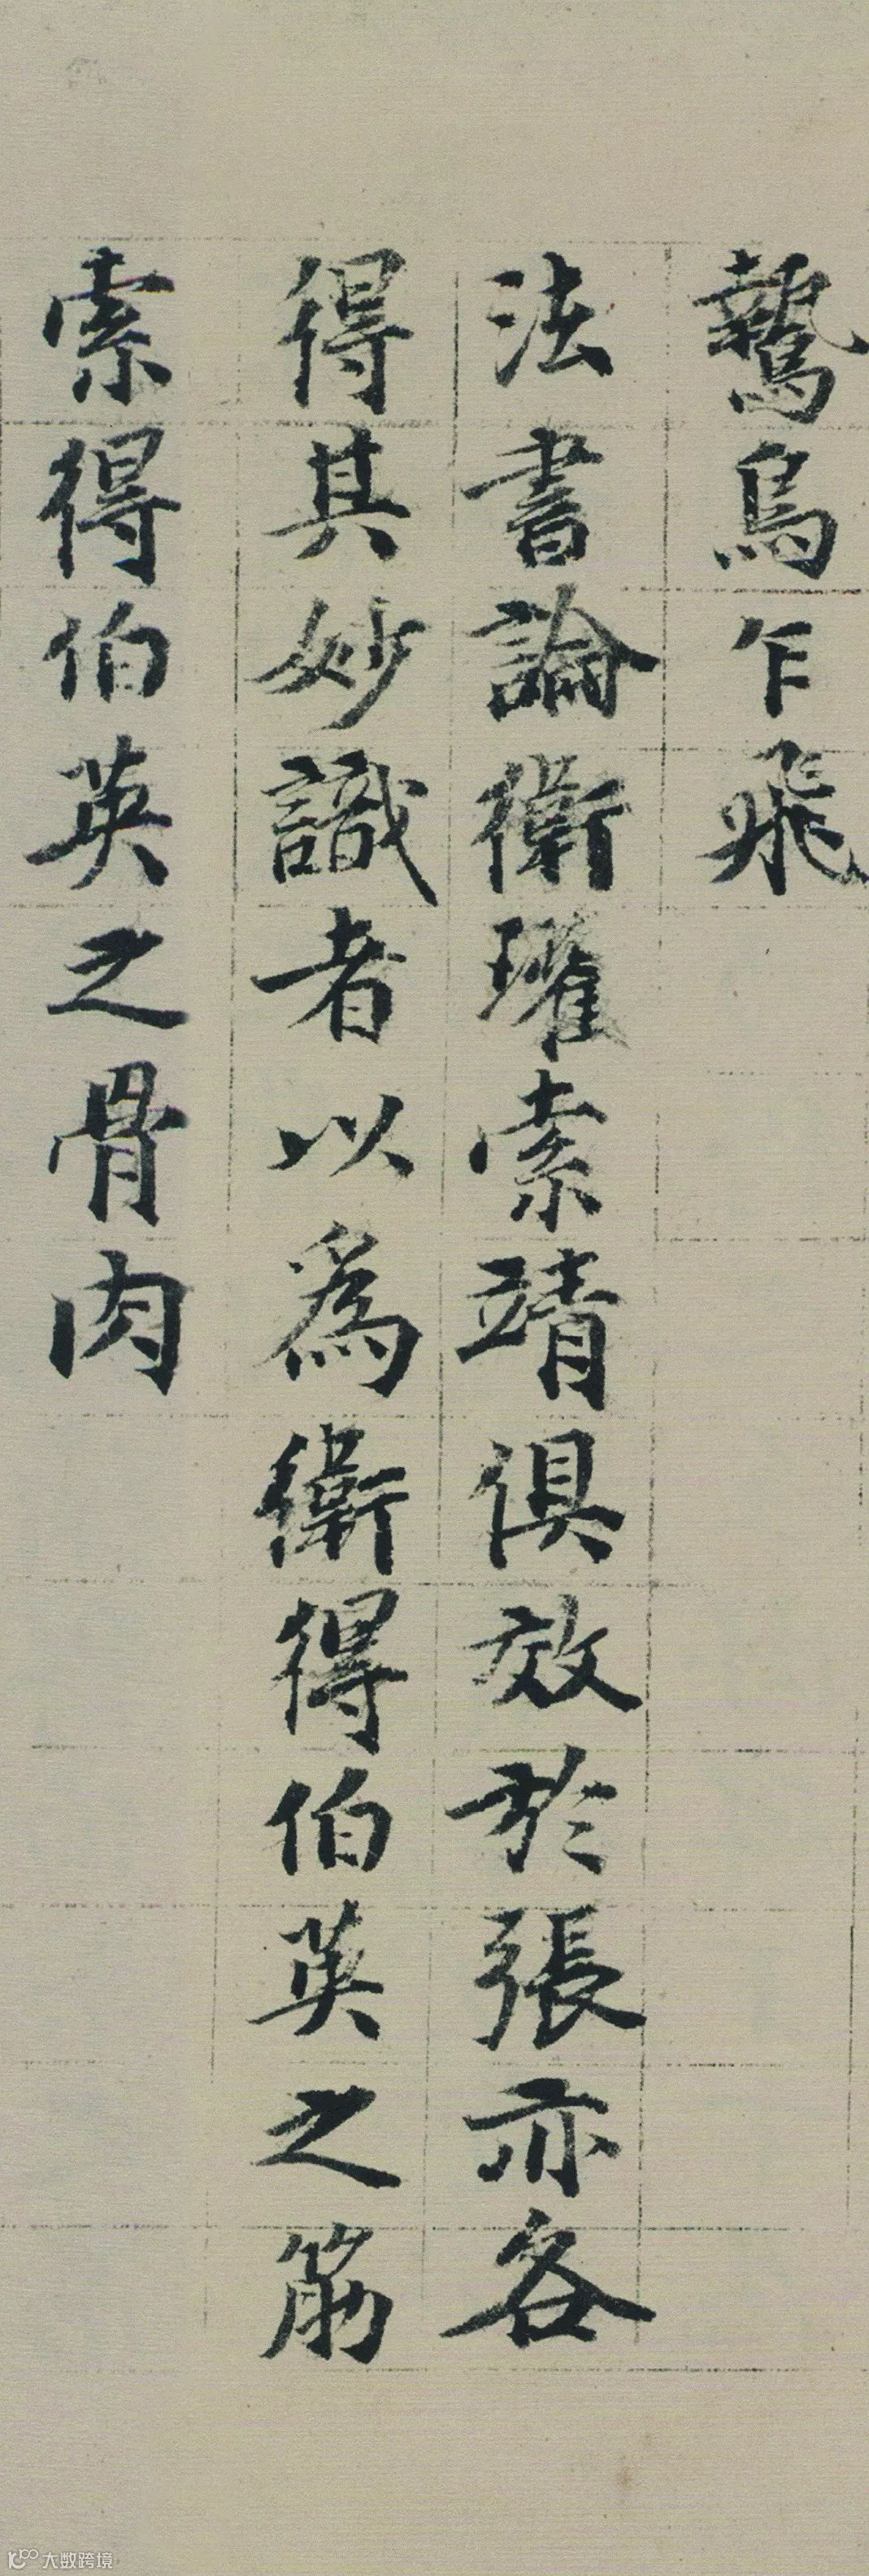 鷙鳥乍飛
法書論衛瓘索靖俱效於張亦各
得其妙識者以為衛得伯英之筋
索得伯英之骨肉
大数跨境